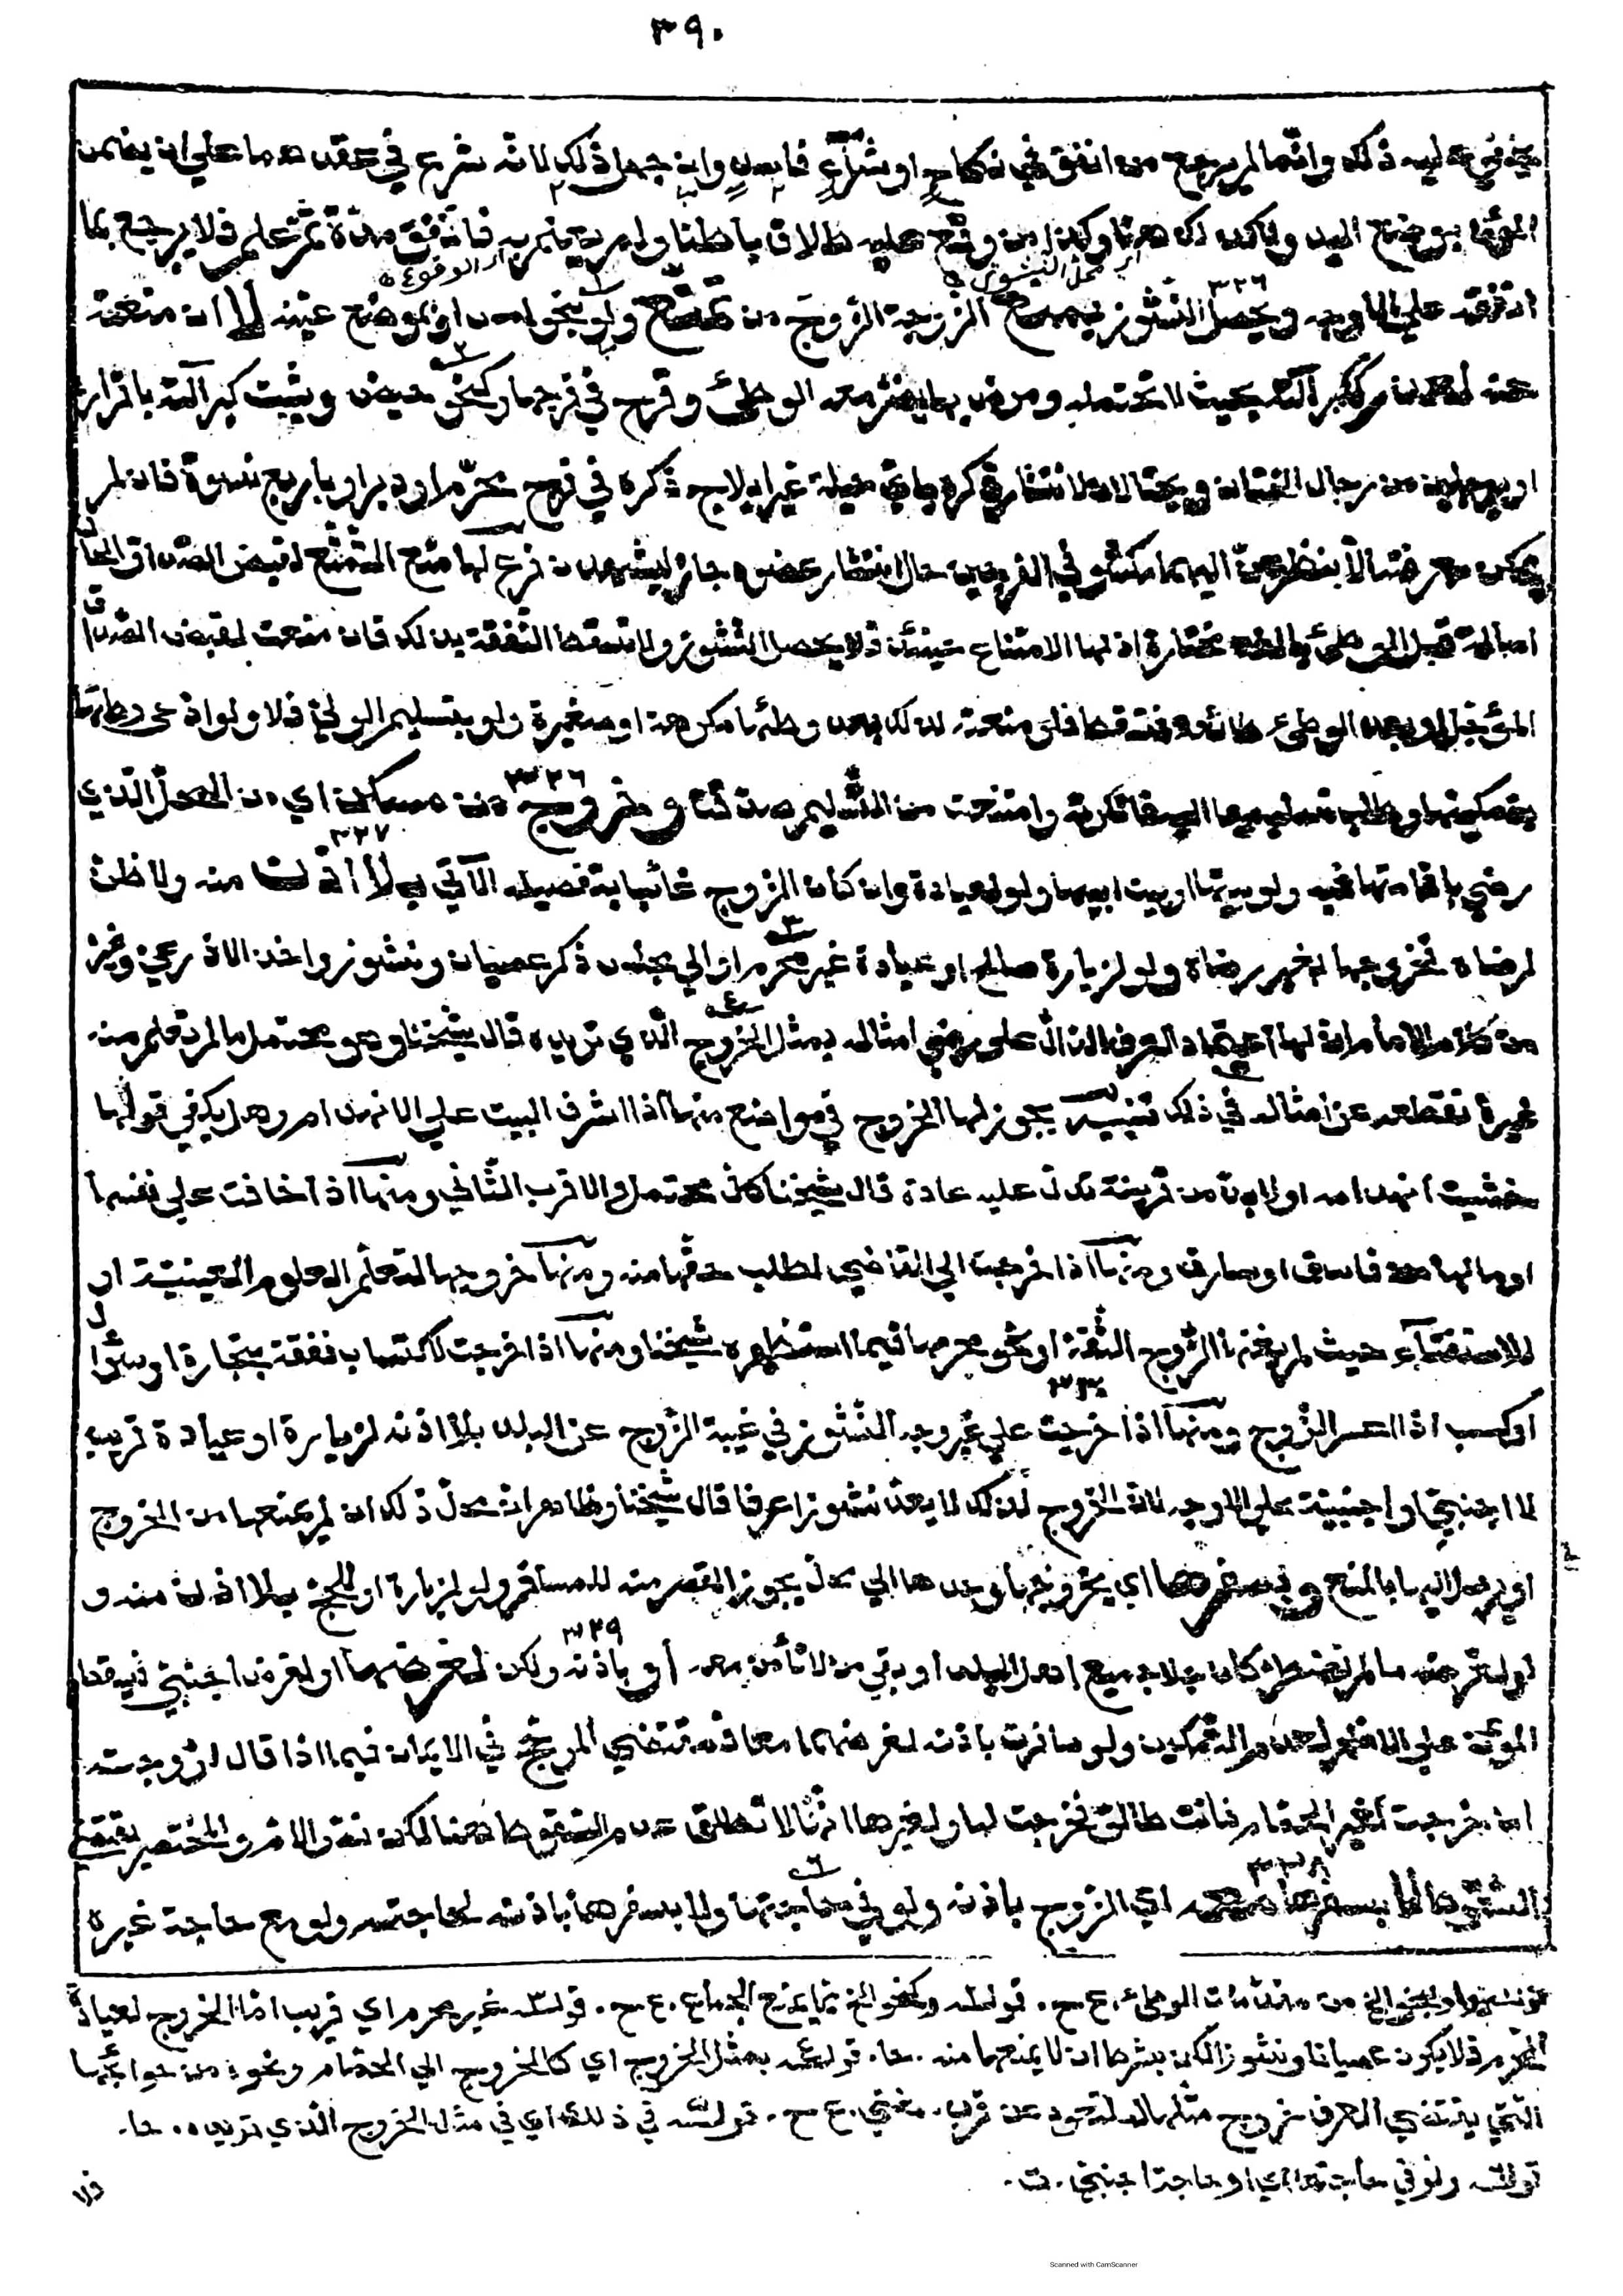 ٣٩٠
ذلك وانما لم يرجع من انفق في نكاح او شراء فاسد وان جهل ذلك لانه شرع في عقدهما على ان يضمن
المؤن بوضع اليد ولا كذلك هنا وكذا من وقع عليه طلاق باطنا ولم يعلم به فانفق مدة ثم علم فلا يرجع بما
انفقه على الاوجه ويحصل النشوز بمنع الزوجة الزوج من تمتع ولو بنحو لمس او بموضع عينه لا ان منعته
عنه لعذر ككبر آلته بحيث لا تحتمله ومرض بها يضر معه الوطئ وقرح في فرجها وكنحو حيض ويثبت كبر آلته باقراره
او برجلين من رجال الختان ويحتالان لانتشار ذكره باي حيلة غير ايلاج ذكره في فرج محرم او دبر او باربع نسوة فان لم
يمكن معرفته الا بنظرهن اليهما مكشوفي الفرجين حال انتشار عضوه جاز ليشهدن فرع لها منع التمتع لقبض الصداق الحال
اصالة قبل الوطئ بالغة مختارة اذ لها الامتناع حينئذ فلا يحصل النشوز ولا تسقط النفقة بذلك فان منعت لقبض الصداق
المؤجل او بعد الوطئ طائعة فتسقط فلو منعته لذلك بعد وطئها مكرهة او صغيرة ولو بتسليم الولي فلا ولو ادعى وطئها
بتمكينها وطلب تسليمها اليه فانكرته وامتنعت من التسليم صدقت وخروج من مسكن اي من المحل الذي
رضي باقامتها فيه ولو بيتها او بيت ابيها ولو لعيادة وان كان الزوج غائبا بتفصيله الآتي بلا اذن منه ولا ظن
لرضاه فخروجها بغير رضاه ولو لزيارة صالح او عيادة غير محرم او الى مجلس ذكر عصيان ونشوز واخذ الاذرعي وغيره
من كلام الامام ان لها اعتماد العرف الدال على رضى امثاله بمثل الخروج الذي تريده قال شيخنا وهو محتمل ما لم تعلم منه
غيرة تقطعه عن امثاله في ذلك تنبيه يجوز لها الخروج في مواضع منها اذا اشرف البيت على الانهدام وهل يكفي قولها
خشيت انهدامه او لا بد من قرينة تدل عليه عادة قال شيخنا كل محتمل والاقرب الثاني ومنها اذا خافت على نفسها
او مالها من فاسق او سارق ومنها اذا خرجت الى القاضي لطلب حقها منه ومنها خروجها لتعلم العلوم العينية او
للاستفتاء حيث لم يغنها الزوج الثقة او نحو محرمها فيما استظهره شيخنا ومنها اذا خرجت لاكتساب نفقة بتجارة او سؤال
او كسب اذا اعسر الزوج ومنها اذا خرجت على غير وجه النشوز في غيبة الزوج عن البلد بلا اذنه لزيارة او عيادة قريب
لا اجنبي او اجنبية على الاوجه لان الخروج لذلك لا يعد نشوزا عرفا قال شيخنا وظاهر ان محل ذلك ان لم يمنعها من الخروج
او يرسل اليها بالمنع وبسفرها اي بخروجها وحدها الى محل يجوز القصر منه للمسافر ولو لزيارة او للحج بلا اذن منه و
لو لغرضه ما لم تضطر كأن جلا جميع اهل البلد او بقي من لا تأمن معه او باذنه ولكن لغرضها او لغرض اجنبي فيسقط
المؤن على الاظهر لعدم التمكين ولو سافرت باذنه لغرضهما معا فمقتضى المرجح في الايمان فيما اذا قال لزوجته
ان خرجت لغير الحمام فانت طالق فخرجت لها ولغيرها انها لا تطلق عدم السقوط هنا لكن نص الام والمختصر يقتضي
السقوط لا بسفرها معه اي الزوج باذنه ولو في حاجتها ولا بسفرها باذنه لحاجته ولو مع حاجة غيره
من مقدمات الوطئ. ع ح. قوله وكنحو الخ مما يمنع الجماع. ع ح. قوله غير محرم اي قريب اما الخروج لعيادة
المحرم فلا يكون عصيانا ونشوزا لكن بشرط ان لا يمنعها منه. حا. قوله بمثل الخروج اي كالخروج الى الحمام ونحوه من حوائجها
التي يقتضي العرف خروج مثلها له لتعود عن قرب. مغني. ع ح. قوله في ذلك اي في مثل الخروج الذي تريده. حا.
قوله ولو في حاجتها اي او حاجة اجنبي. ت.
Scanned with CamScanner